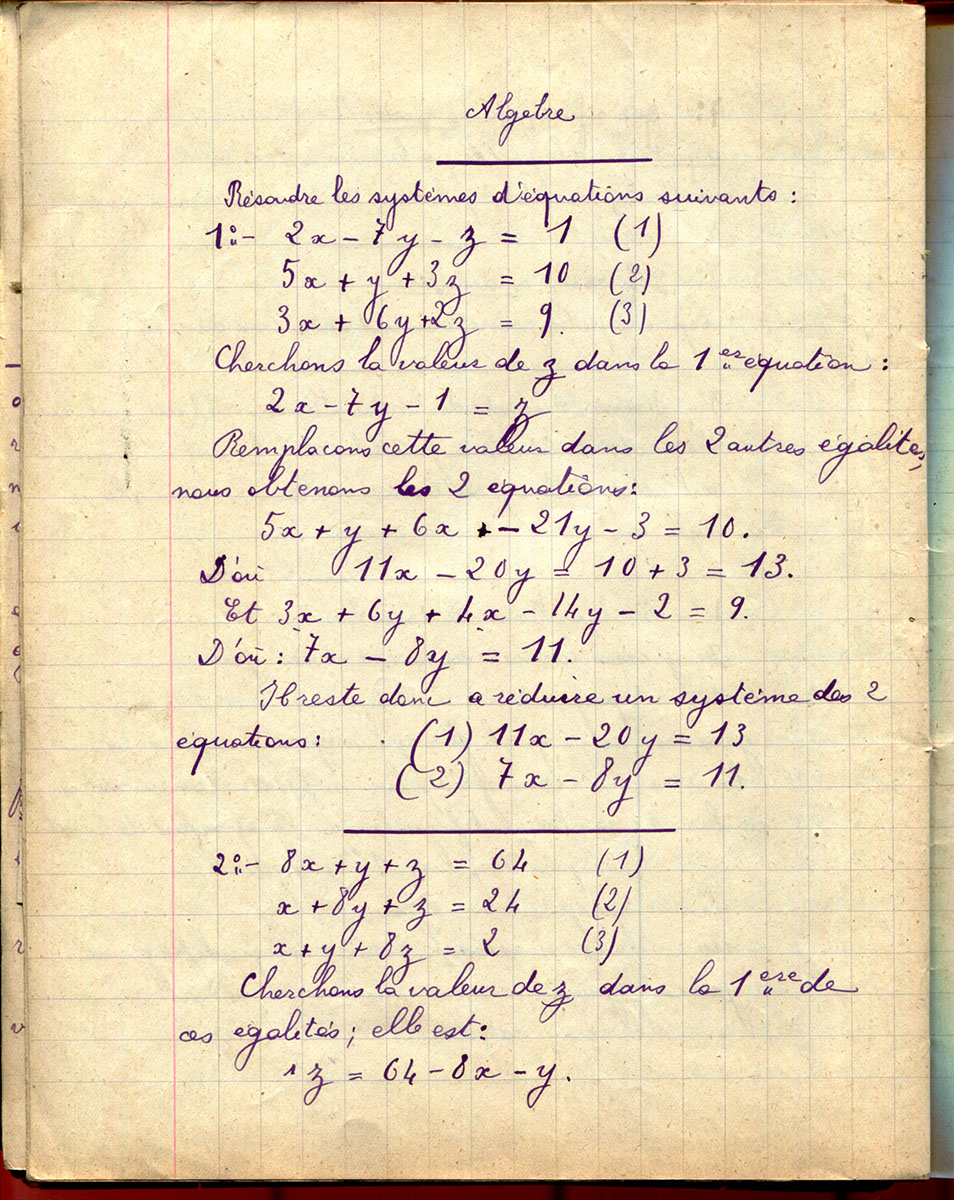 Algebre
Résoudre les systémes d'équations suivants :
1º:- 2x - 7y - z = 1 (1)
5x + y + 3z = 10 (2)
3x + 6y + 2z = 9. (3)
Cherchons la valeur de z dans la 1ere equation :
2x - 7y - 1 = z
Remplacons cette valeur dans les 2 autres égalites,
nous obtenons les 2 equations:
5x + y + 6x - 21y - 3 = 10.
D'où 11x - 20y = 10 + 3 = 13.
Et 3x + 6y + 4x - 14y - 2 = 9.
D'où : 7x - 8y = 11.
Il reste donc a réduire un systéme des 2
équations : (1) 11x - 20y = 13
(2) 7x - 8y = 11.
2º:- 8x + y + z = 64 (1)
x + 8y + z = 24 (2)
x + y + 8z = 2 (3)
Cherchons la valeur de z dans la 1ere de
ces égalités ; elle est :
1 z = 64 - 8x - y.